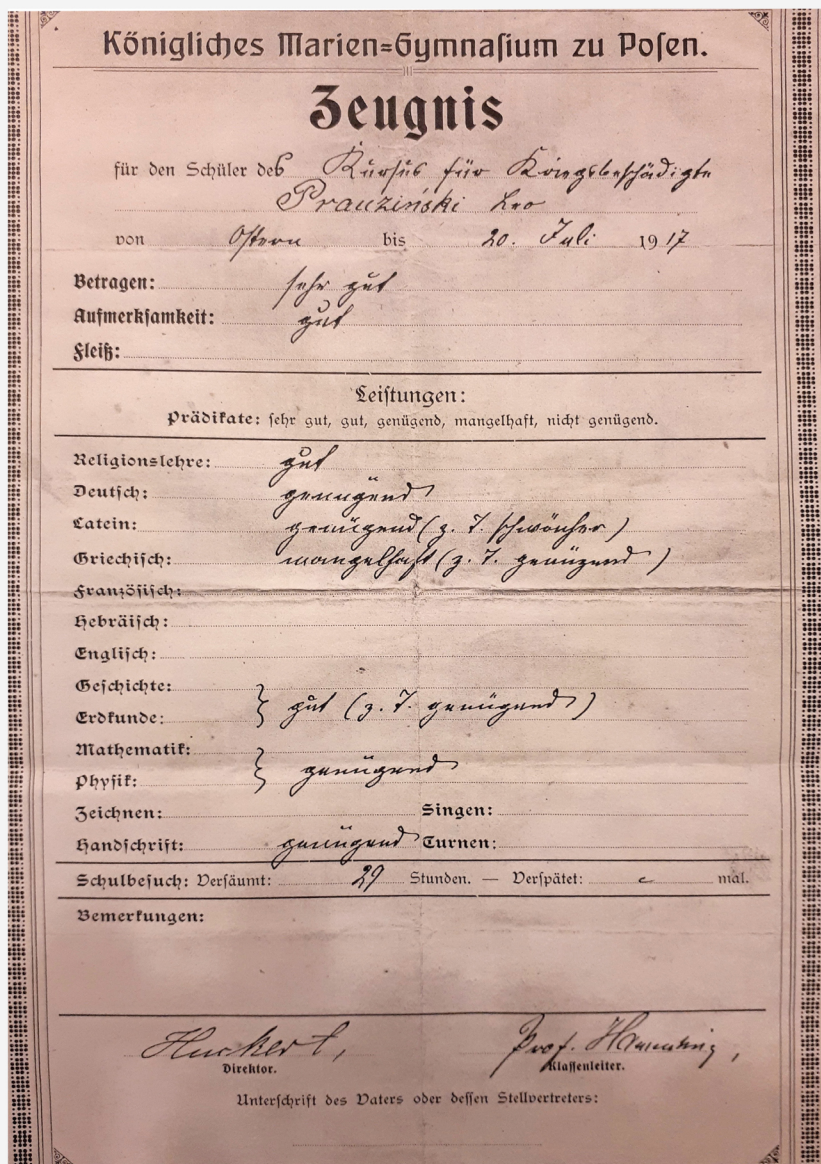 Königliches Marien=Gymnasium zu Posen.
Zeugnis
für den Schüler des Kursus für Kriegsbeschädigte
Prauziński Leo
von Ostern bis 20. Juli 1917
Betragen: sehr gut
Aufmerksamkeit: gut
Fleiß:
Leistungen:
Prädikate: sehr gut, gut, genügend, mangelhaft, nicht genügend.
Religionslehre: gut
Deutsch: genügend
Latein: genügend (z. T. schwächer)
Griechisch: mangelhaft (z. T. genügend)
Französisch:
Hebräisch:
Englisch:
Geschichte:
Erdkunde: } gut (z. T. genügend)
Mathematik:
Physik: } genügend
Zeichnen: Singen:
Handschrift: genügend Turnen:
Schulbesuch: Versäumt: 29 Stunden. — Verspätet: mal.
Bemerkungen:
Huckert, Prof.
Direktor. Klassenleiter.
Unterschrift des Vaters oder dessen Stellvertreters: